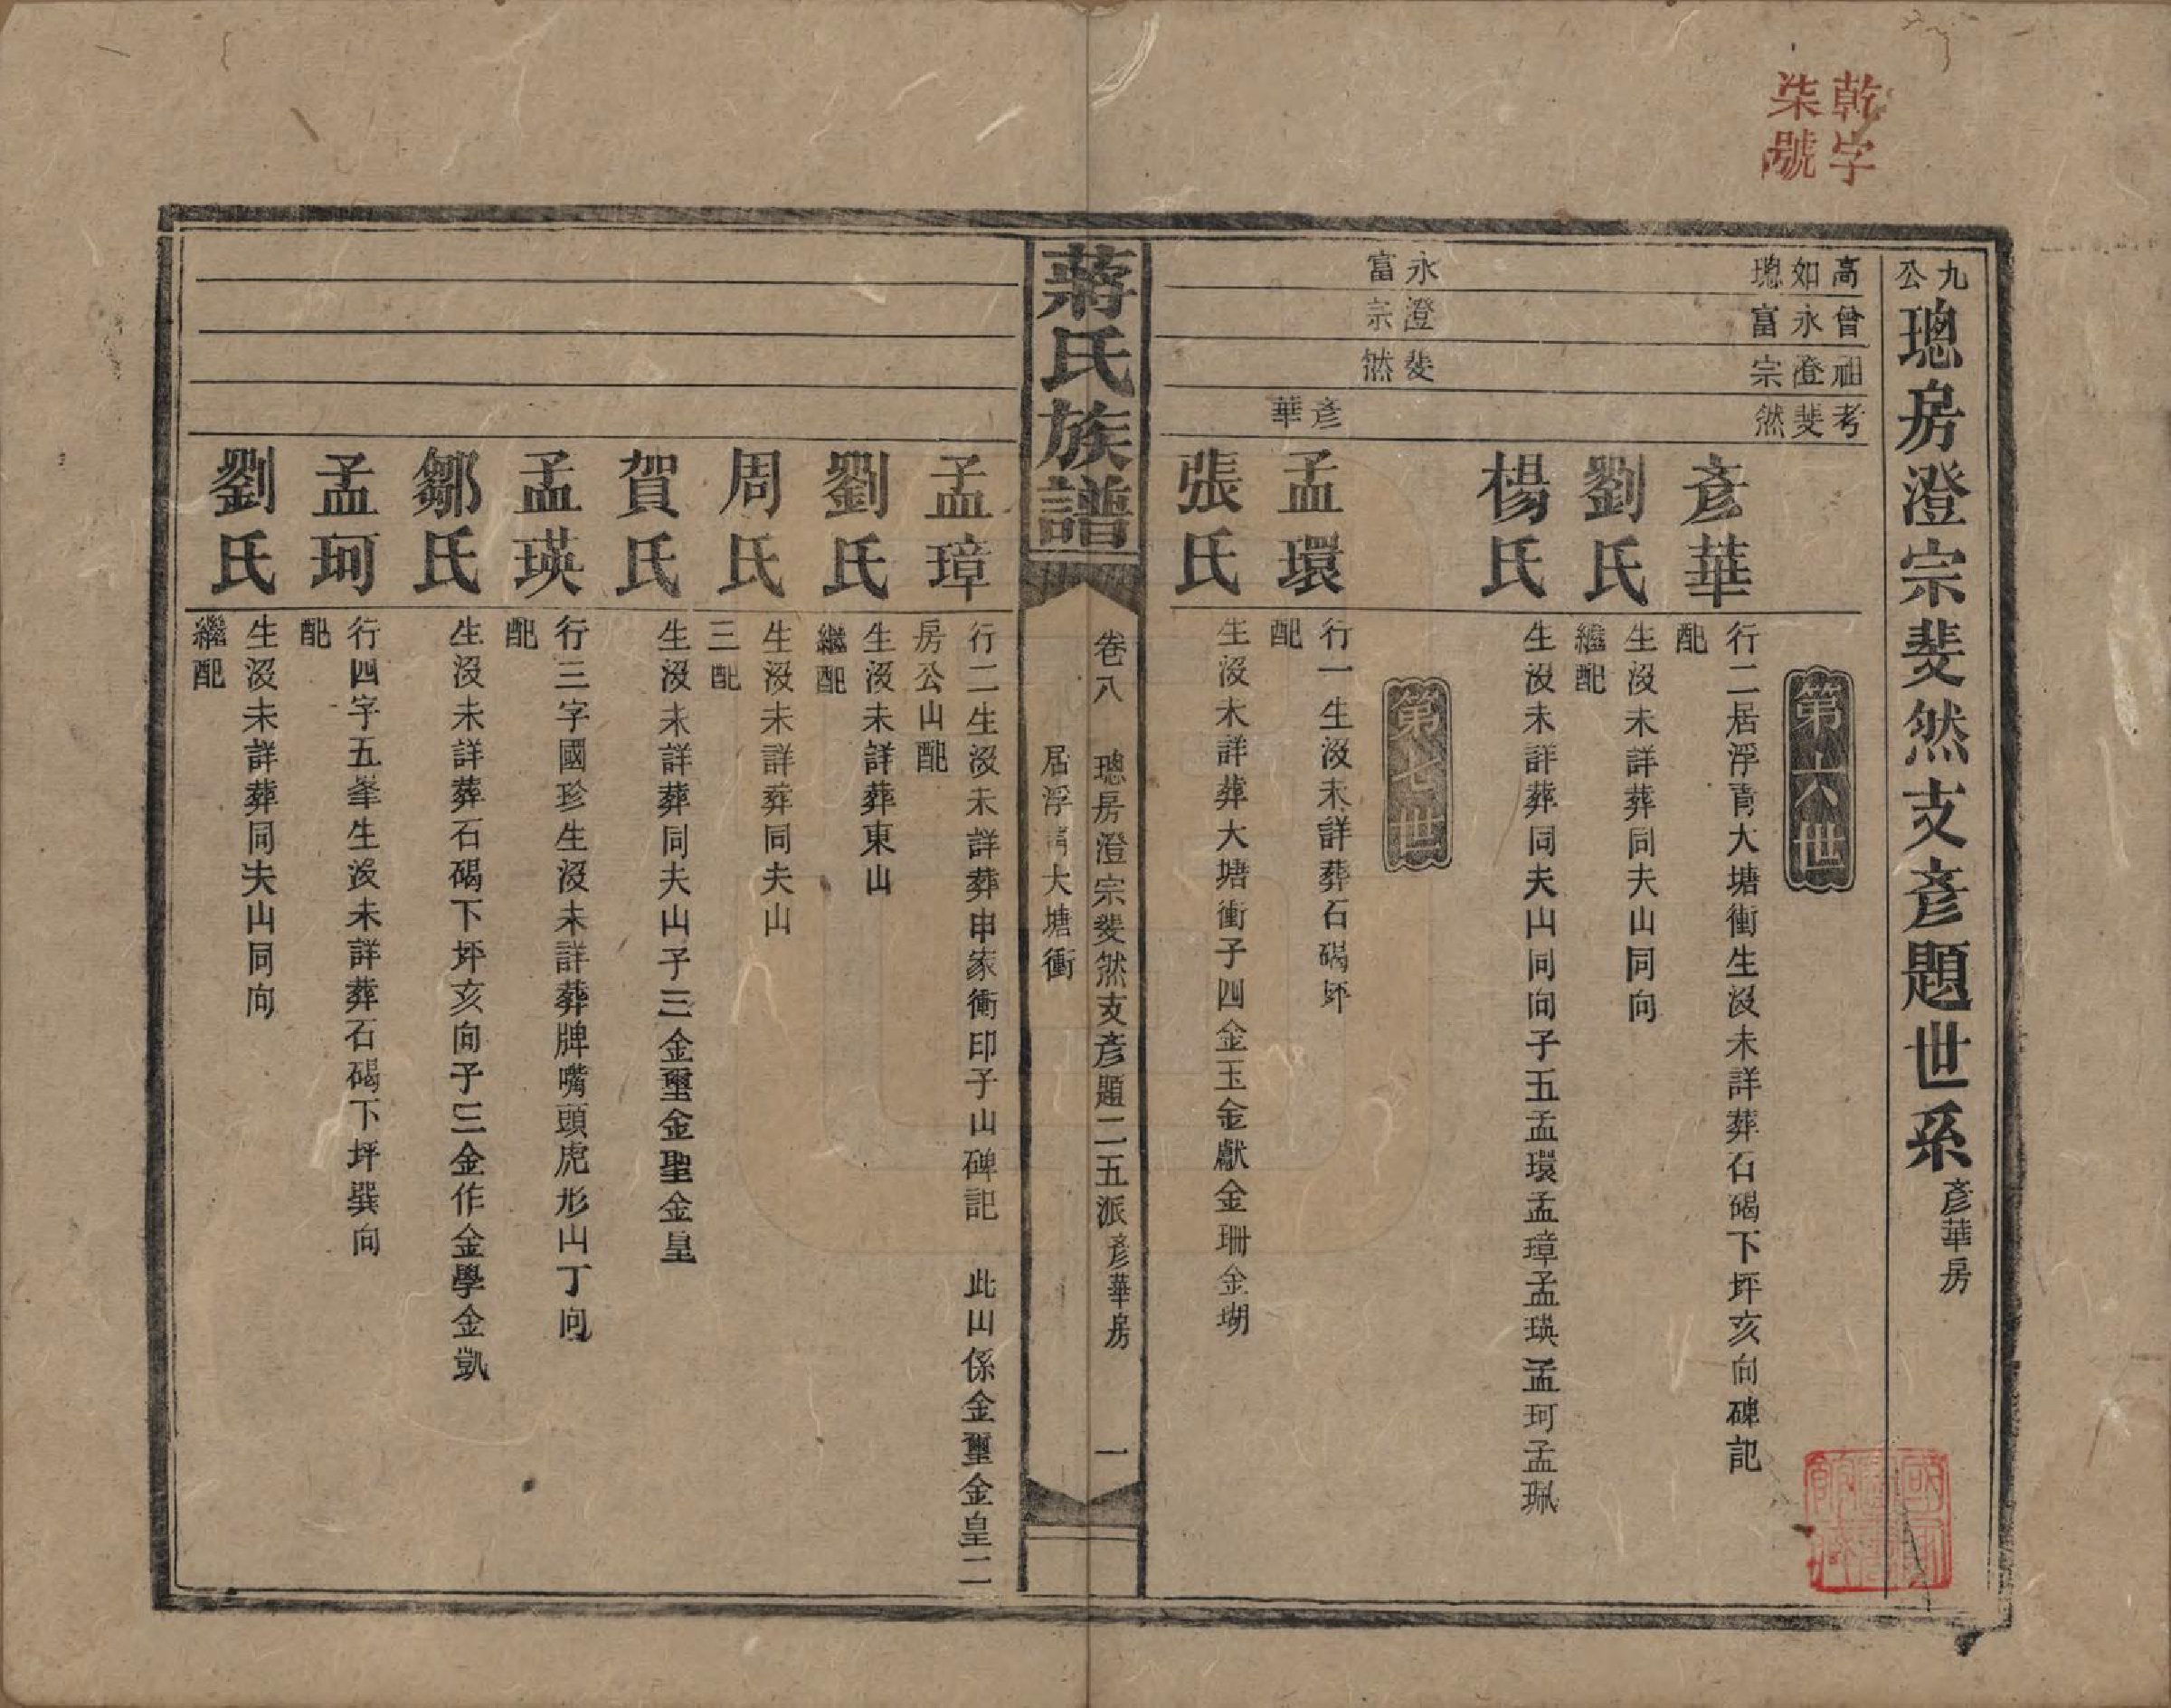 乾字
柒號
九公
璁房澄宗斐然支彥題世系
彥華房
高 如璁
曾 永富
祖 澄宗
考 斐然
第六世
彥華
行二居浮青大塘衝生沒未詳葬石碣下坪亥向碑記
配
劉氏
生沒未詳葬同夫山同向
繼配
楊氏
生沒未詳葬同夫山同向子五孟環孟璋孟瑛孟珂孟珮
永富
澄宗
斐然
第七世
彥華
孟環
行一生沒未詳葬石碣坪
配
張氏
生沒未詳葬大塘衝子四金玉金獻金珊金瑚
蔣氏族譜
卷八
璁房澄宗斐然支彥題二五派彥華房
居浮青大塘衝
一
孟璋
行二生沒未詳葬申家衝印子山碑記 此山係金璽金皇二
房公山配
劉氏
生沒未詳葬東山
繼配
周氏
生沒未詳葬同夫山
三配
賀氏
生沒未詳葬同夫山子三金璽金聖金皇
孟瑛
行三字國珍生沒未詳葬牌嘴頭虎形山丁向
配
鄒氏
生沒未詳葬石碣下坪亥向子三金作金學金凱
孟珂
行四字五峯生沒未詳葬石碣下坪巽向
配
劉氏
生沒未詳葬同夫山同向
繼配